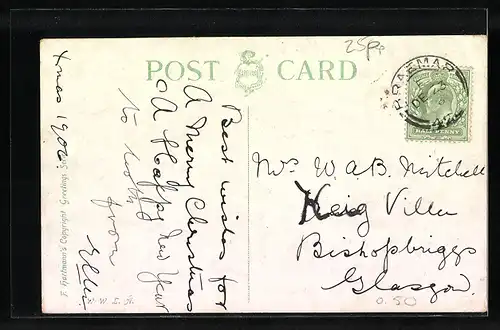 25p
POST CARD
BRAEMAR
DE
HALF PENNY
Xmas 190
F. Hartmann's Copyright Greetings
Best wishes for
A Merry Christmas
& A Happy New Year
to both
from
Ellie
Mrs W. A. B. Mitchell
Villa
Bishopbriggs
Glasgow.
0.50